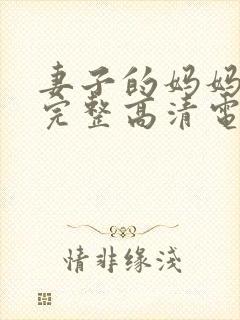 妻子的妈妈
完整高清电
情非缘浅